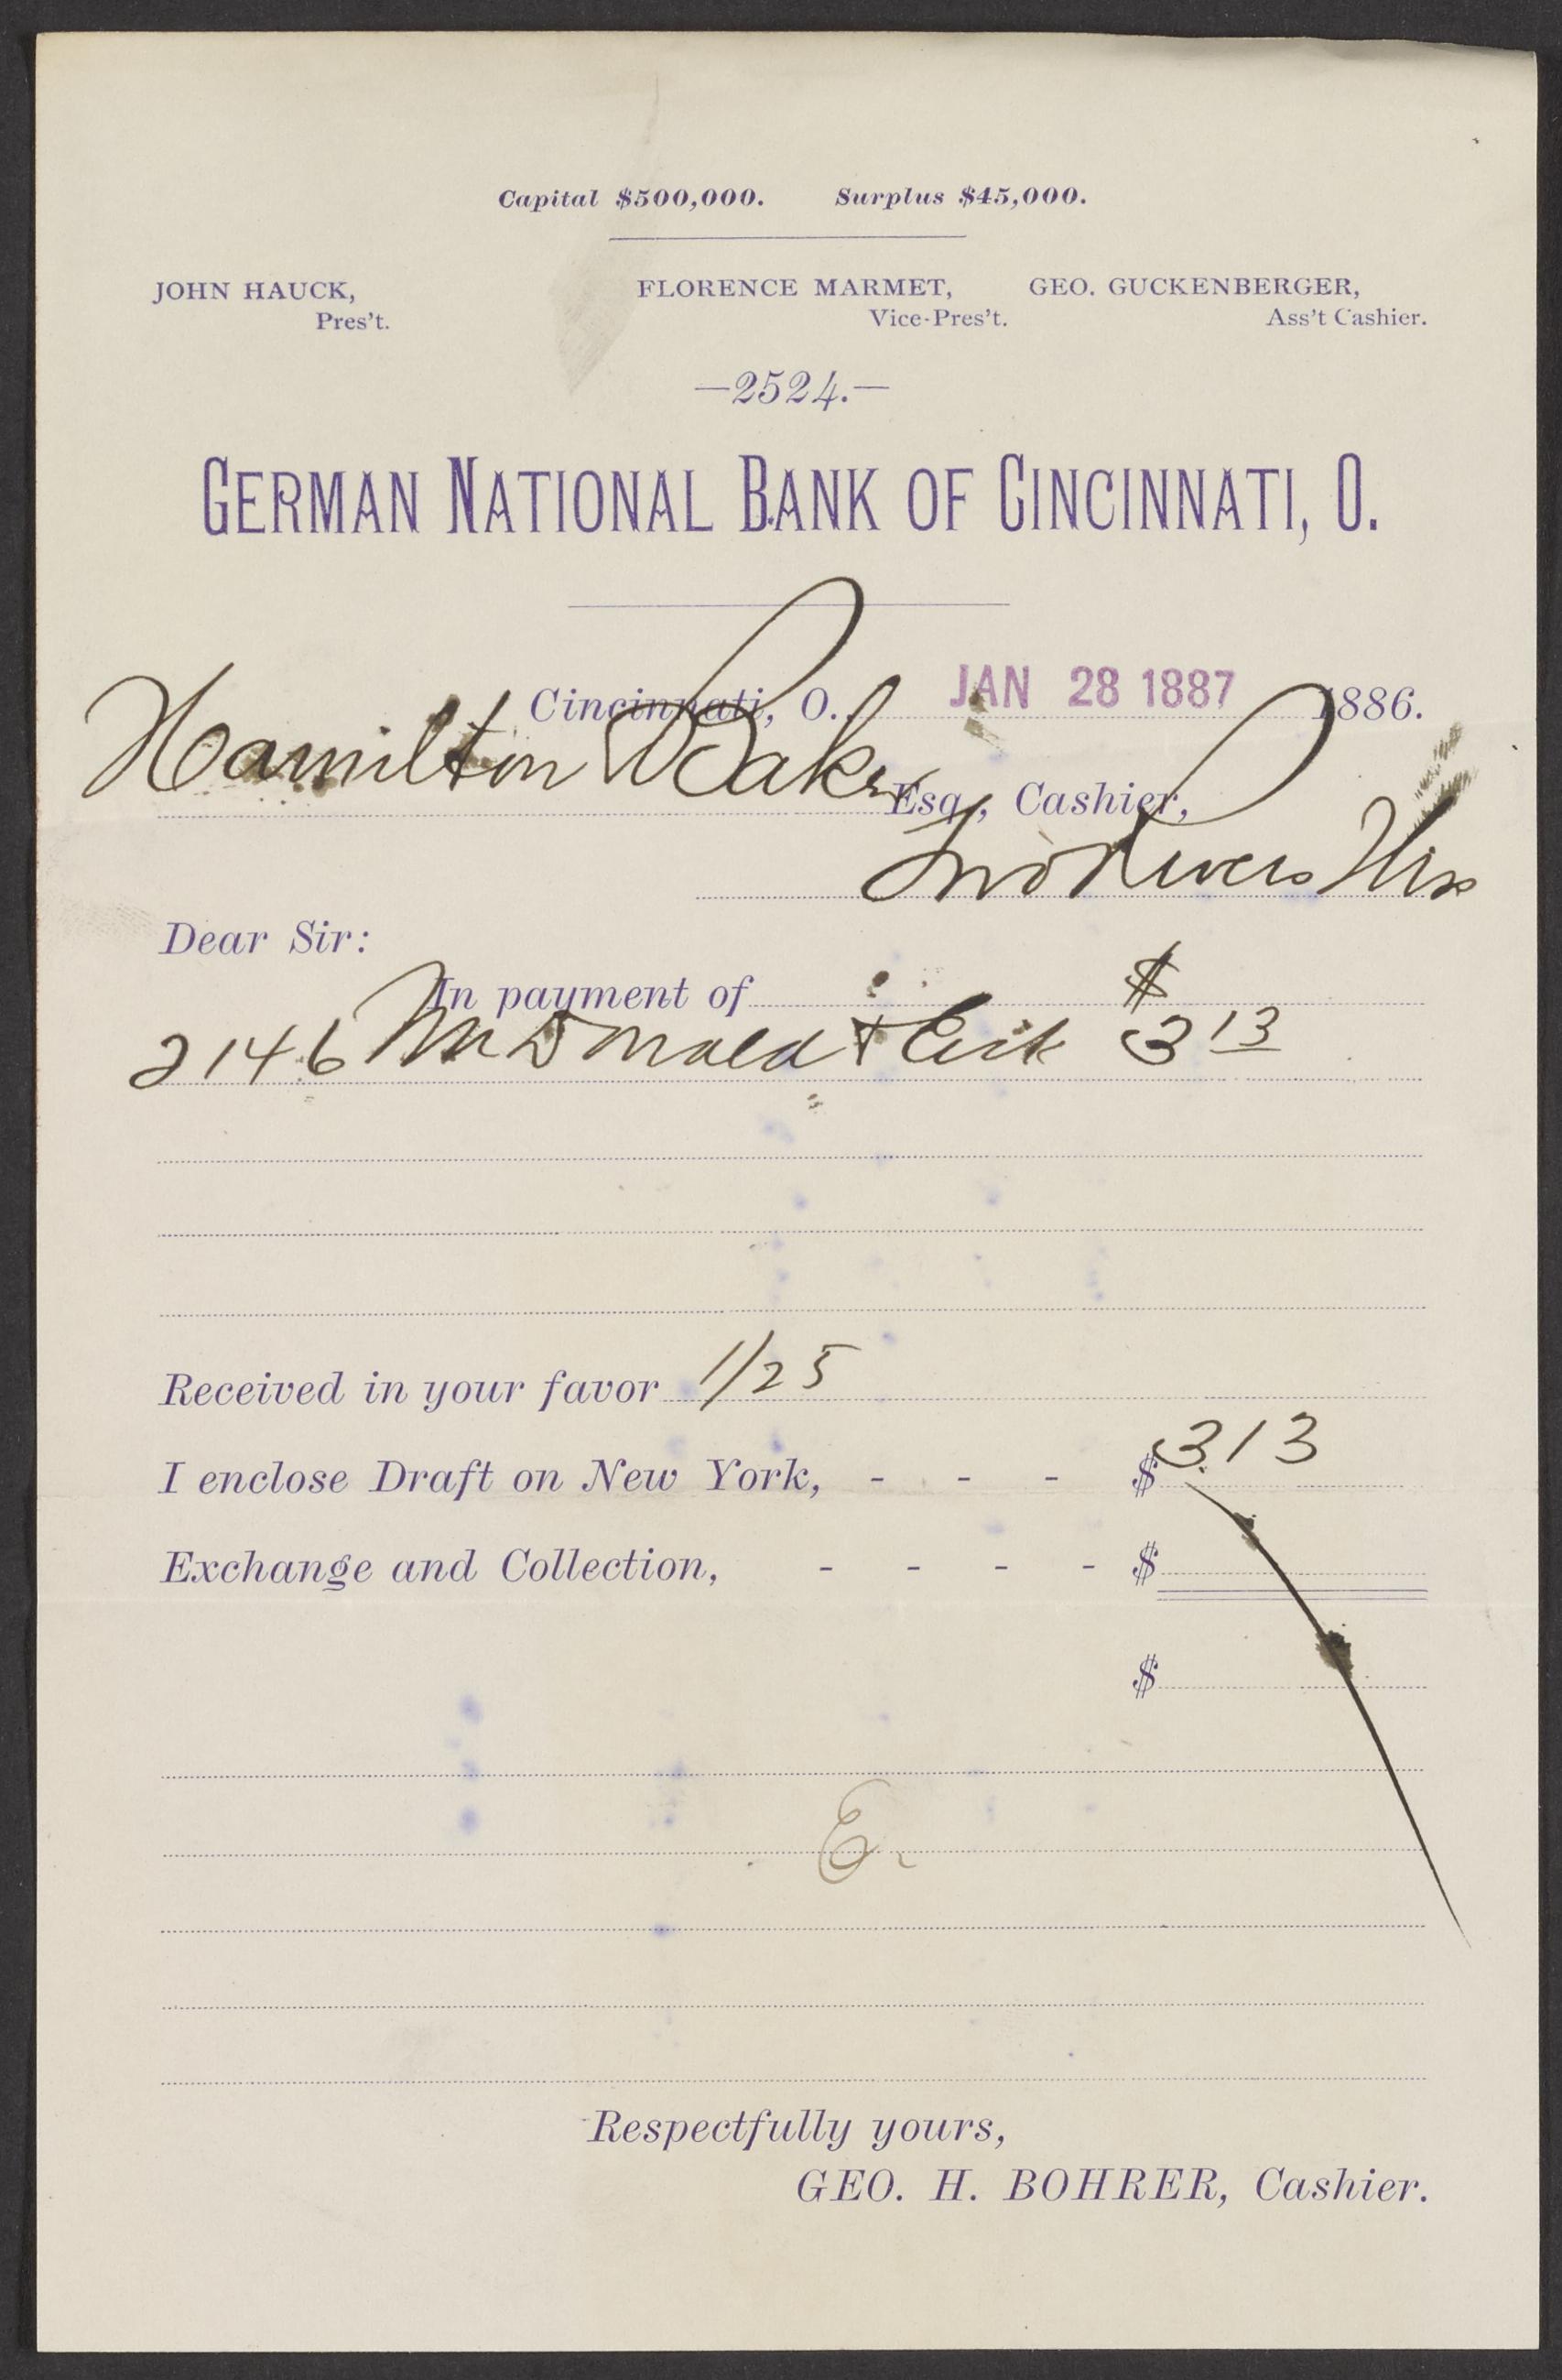 Capital $500,000. Surplus $45,000.
JOHN HAUCK, FLORENCE MARMET, GEO. GUCKENBERGER,
Pres't. Vice-Pres't. Ass't Cashier.
—2524.—
GERMAN NATIONAL BANK OF CINCINNATI, O.
Cincinnati, O., JAN 28 1887 1886.
Hamilton Esq., Cashier,
Two Rivers Wis
Dear Sir:
In payment of $
2146 McDonald & 3 13
Received in your favor 1/25
I enclose Draft on New York, - - - $ 3.13
Exchange and Collection, - - - - $
$
E.
Respectfully yours,
GEO. H. BOHRER, Cashier.